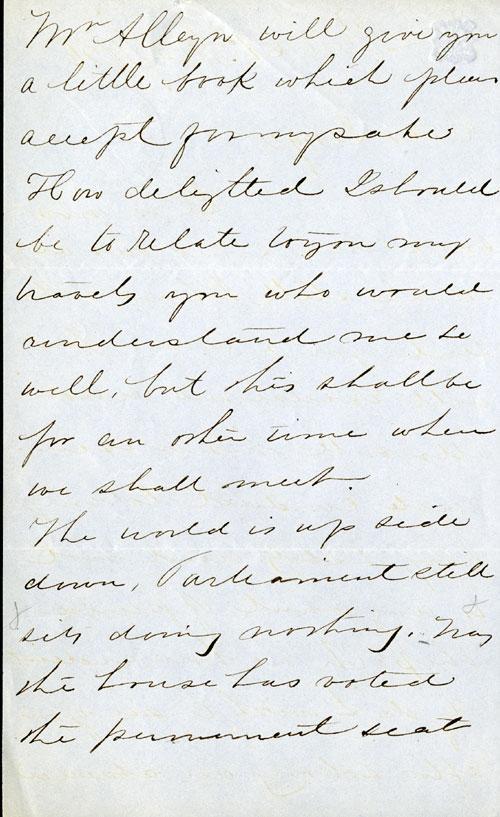 Mr Alleyn will give you
a little book which pleas
accept for my sake
How delighted I should
be to relate to you my
travels you who would
understand me so
well, but this shall be
for an other time when
we shall meet.
The world is up side
down, Parliament still
sits doing nothing. Nay
the house has voted
the permenent seat